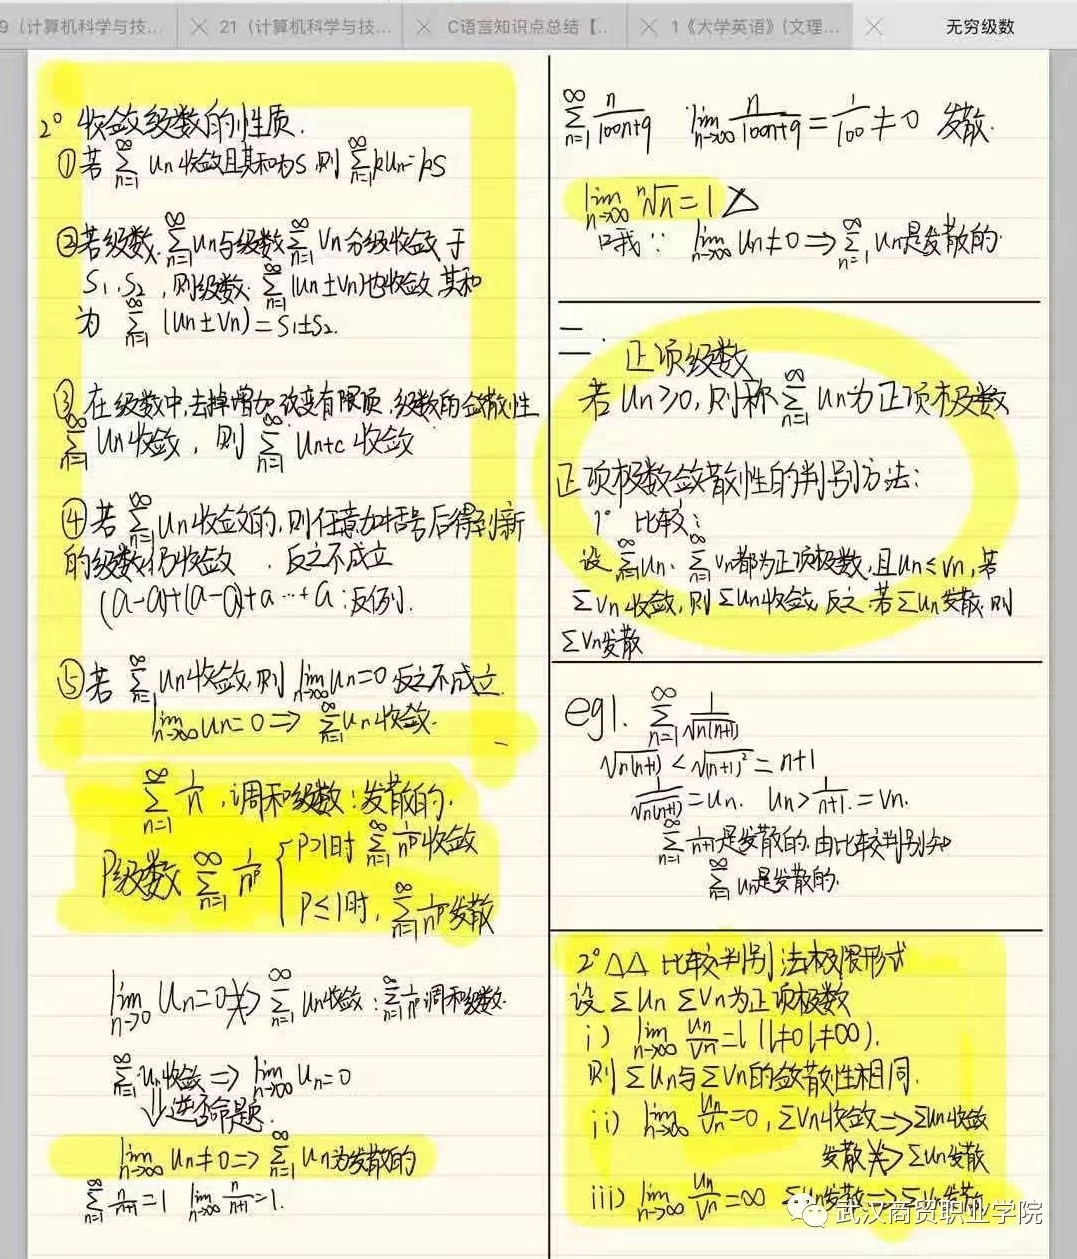 9（计算机科学与技...
21（计算机科学与技...
C语言知识点总结【..
1《大学英语》(文理...
无穷级数
2° 收敛级数的性质.
①若 ∑_{n=1}^∞ un 收敛且其和为S 则 ∑_{n=1}^∞ kun=kS
②若级数 ∑_{n=1}^∞ un与级数 ∑_{n=1}^∞ vn 分级收敛于
S1.S2，则级数 ∑_{n=1}^∞ (un±vn)也收敛 其和
为 ∑_{n=1}^∞ (un±vn)=S1±S2.
③在级数中,去掉增加改变有限项,级数的敛散性
∑_{n=1}^∞ un收敛，则 ∑_{n=1}^∞ un+c 收敛
④若 ∑_{n=1}^∞ un收敛的,则任意加括号后得到新
的级数仍收敛．反之不成立
(a-a)+(a-a)+a…+a:反例.
⑤若 ∑_{n=1}^∞ un收敛,则 lim_{n→∞} un=0 反之不成立.
lim_{n→∞} un=0 => ∑_{n=1}^∞ un收敛.
∑_{n=1}^∞ 1/n ,调和级数:发散的.
P级数 ∑_{n=1}^∞ 1/n^p { P>1时 ∑_{n=1}^∞ 1/n^p 收敛
P≤1时, ∑_{n=1}^∞ 1/n^p 发散
lim_{n→0} un=0 ≠> ∑_{n=1}^∞ un收敛: ∑_{n=1}^∞ 1/n^p 调和级数.
∑_{n=1}^∞ un收敛 => lim_{n→∞} un=0
⇓逆否命题.
lim_{n→∞} un≠0 => ∑_{n=1}^∞ un为发散的
∑_{n=1}^∞ n/(n+1)=1 lim_{n→∞} n/(n+1)=1.
∑_{n=1}^∞ n/(100n+9) lim_{n→∞} n/(100n+9)=1/100≠0 发散.
lim_{n→∞} ⁿ√n=1 △
∵ lim_{n→∞} un≠0 => ∑_{n=1}^∞ un是发散的.
二.正项级数
若un≥0,则称 ∑_{n=1}^∞ un为正项极数
正项极数敛散性的判别方法:
1° 比较:
设 ∑_{n=1}^∞ un、∑_{n=1}^∞ vn都为正项极数,且un≤vn,若
∑vn收敛,则∑un收敛,反之,若∑un发散,则
∑vn发散
eg1. ∑_{n=1}^∞ 1/√n(n+1)
√n(n+1) < √(n+1)² = n+1
1/√n(n+1) = un. un > 1/(n+1) = vn.
∑_{n=1}^∞ 1/(n+1) 是发散的.由比较判别知
∑_{n=1}^∞ un是发散的.
2°△△ 比较判别法极限形式
设∑un ∑vn为正项极数
i) lim_{n→∞} un/vn = l (l≠0 l≠∞).
则∑un与∑vn的敛散性相同.
ii) lim_{n→∞} un/vn=0, ∑vn收敛 => ∑un收敛
发散 ≠> ∑un发散
iii) lim_{n→∞} un/vn=∞ ∑un发散 => ∑vn发散
武汉商贸职业学院